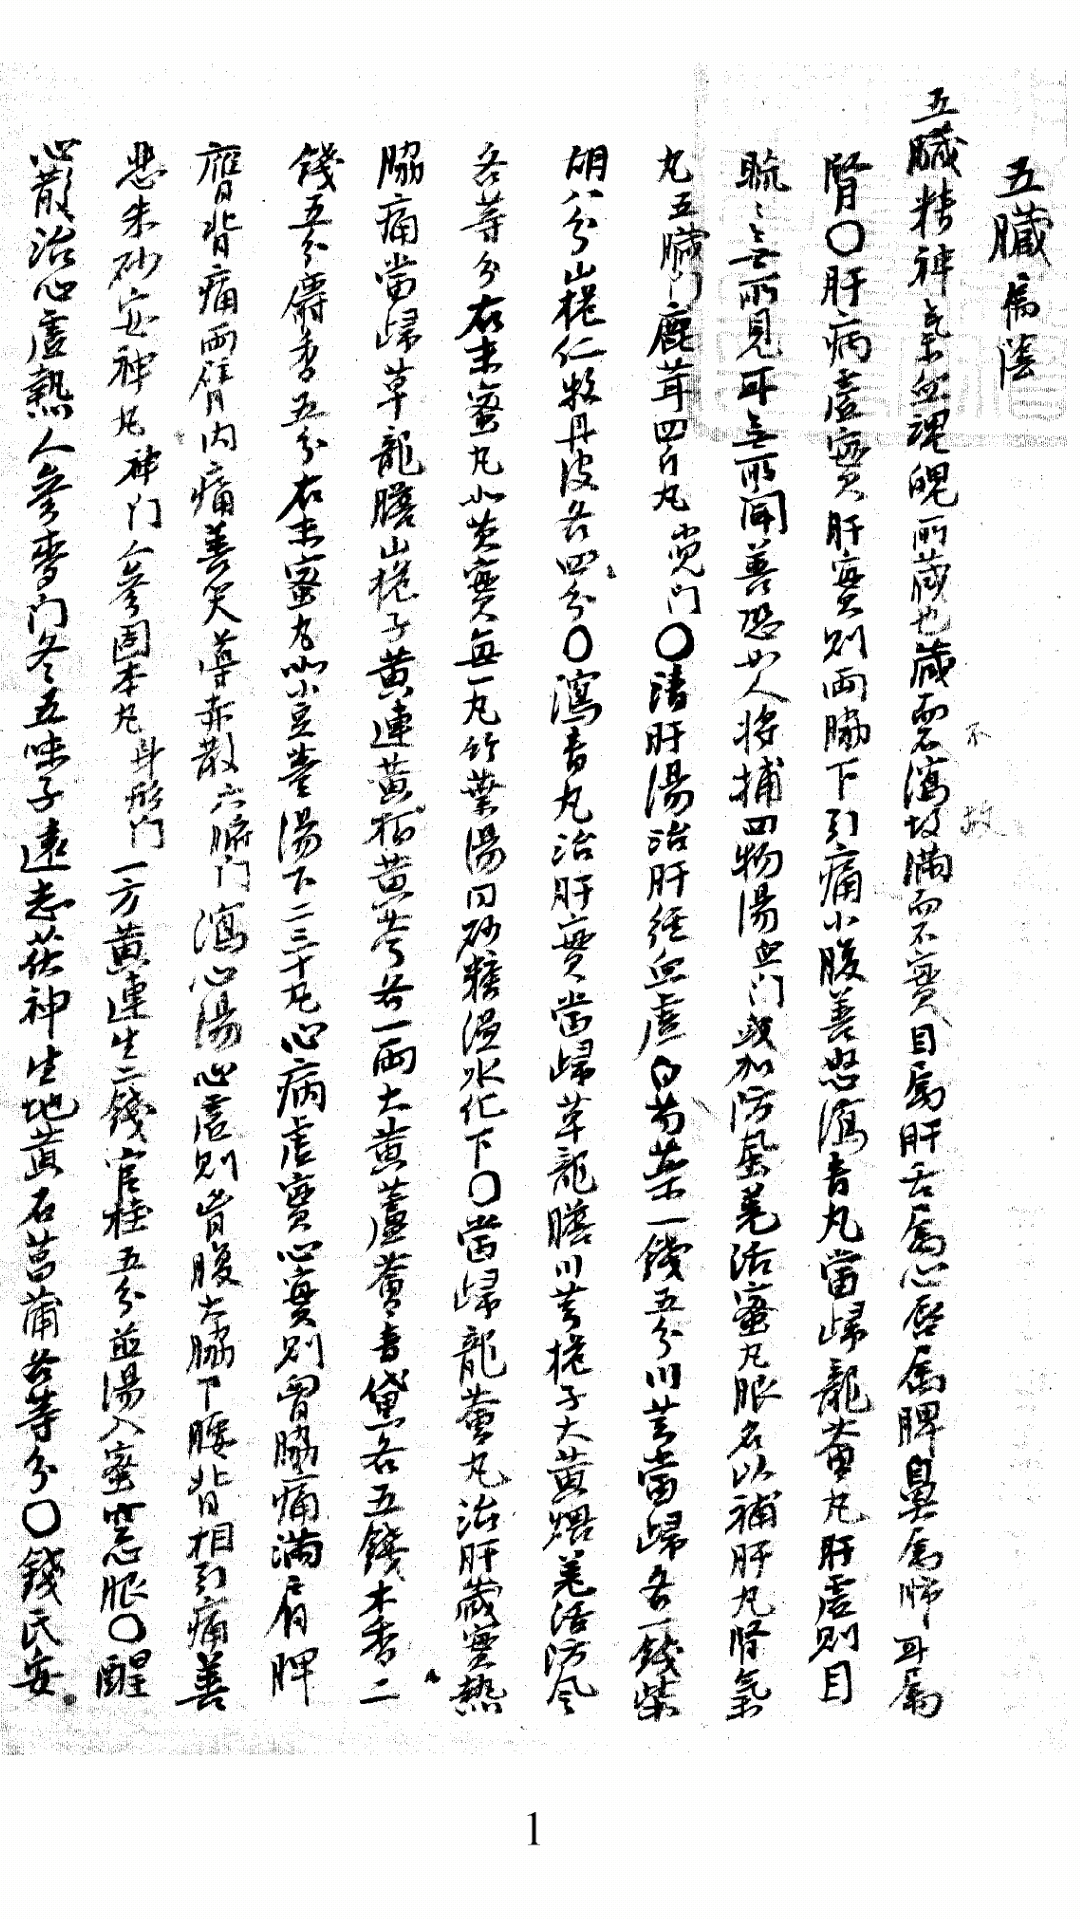 五臟屬陰
五臟精神氣血魂魄所藏也藏而不瀉故滿而不實目屬肝舌屬心唇屬脾鼻屬肺耳屬
不 故
腎〇肝病虛實肝實則兩脇下引痛小腹善怒瀉青丸當歸龍薈丸肝虛則目
䀮〻無所見耳無所聞善恐如人將捕四物湯血門或加防風羌活蜜丸眼名以補肝丸腎氣
丸五臟門鹿茸四斤丸 門〇清肝湯治肝經血虛白芍藥一錢五分川芎當歸各一錢柴
胡八分山梔仁牧丹皮各四分〇瀉青丸治肝實當歸草龍膽川芎梔子大黃煨羌活防風
各等分右末蜜丸如芡實每一丸竹葉湯同砂糖溫水化下〇當歸龍薈丸治肝臟實熱
脇痛當歸草龍膽山梔子黃連黃栢黃芩各一兩大黃蘆薈青黛各五錢木香二
錢五分麝香五分右末蜜丸如小豆薑湯下二三十丸心病虛實心實則胸脇痛滿肩胛
膺背痛兩臂內痛善笑導赤散六腑門瀉心湯心虛則胸腹大脇下腰背相引痛善
悲朱砂安神丸神門人參固本丸身形門一方黃連生二錢官桂五分並湯入蜜 服〇醒
心散治心虛熱人參麥門冬五味子遠志茯神生地黃石菖蒲各等分〇錢氏安
1